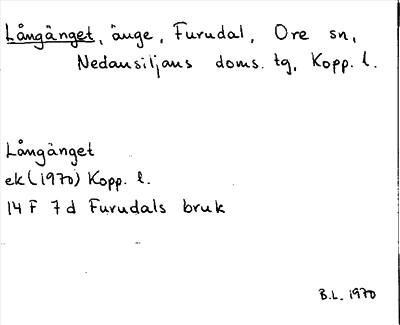 Långänget, änge, Furudal, Ore sn,
Nedansiljans doms. tg, Kopp. l.
Långänget
ek (1970) Kopp. l.
14 F 7d Furudals bruk
B.L. 1970